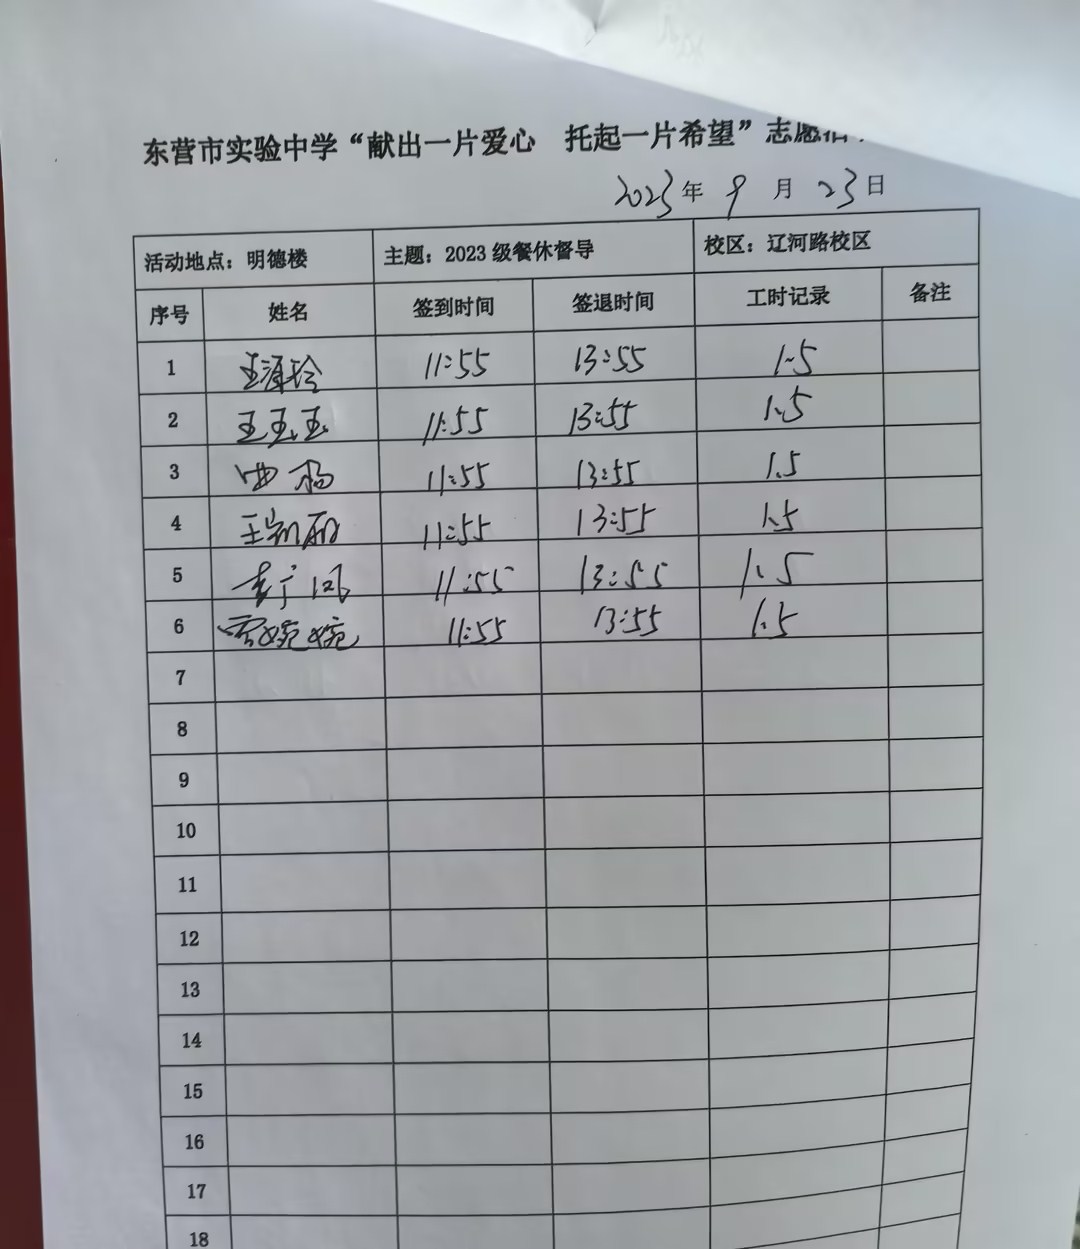 东营市实验中学“献出一片爱心 托起一片希望”志愿
2023年 9月 23日
活动地点：明德楼 主题：2023级餐休督导 校区：辽河路校区
序号 姓名 签到时间 签退时间 工时记录 备注
1 11:55 13:55 1.5
2 王玉玉 11:55 13:55 1.5
3 曲杨 11:55 13:55 1.5
4 王凯丽 11:55 13:55 1.5
5 11:55 13:55 1.5
6 贾婉婉 11:55 13:55 1.5
7
8
9
10
11
12
13
14
15
16
17
18